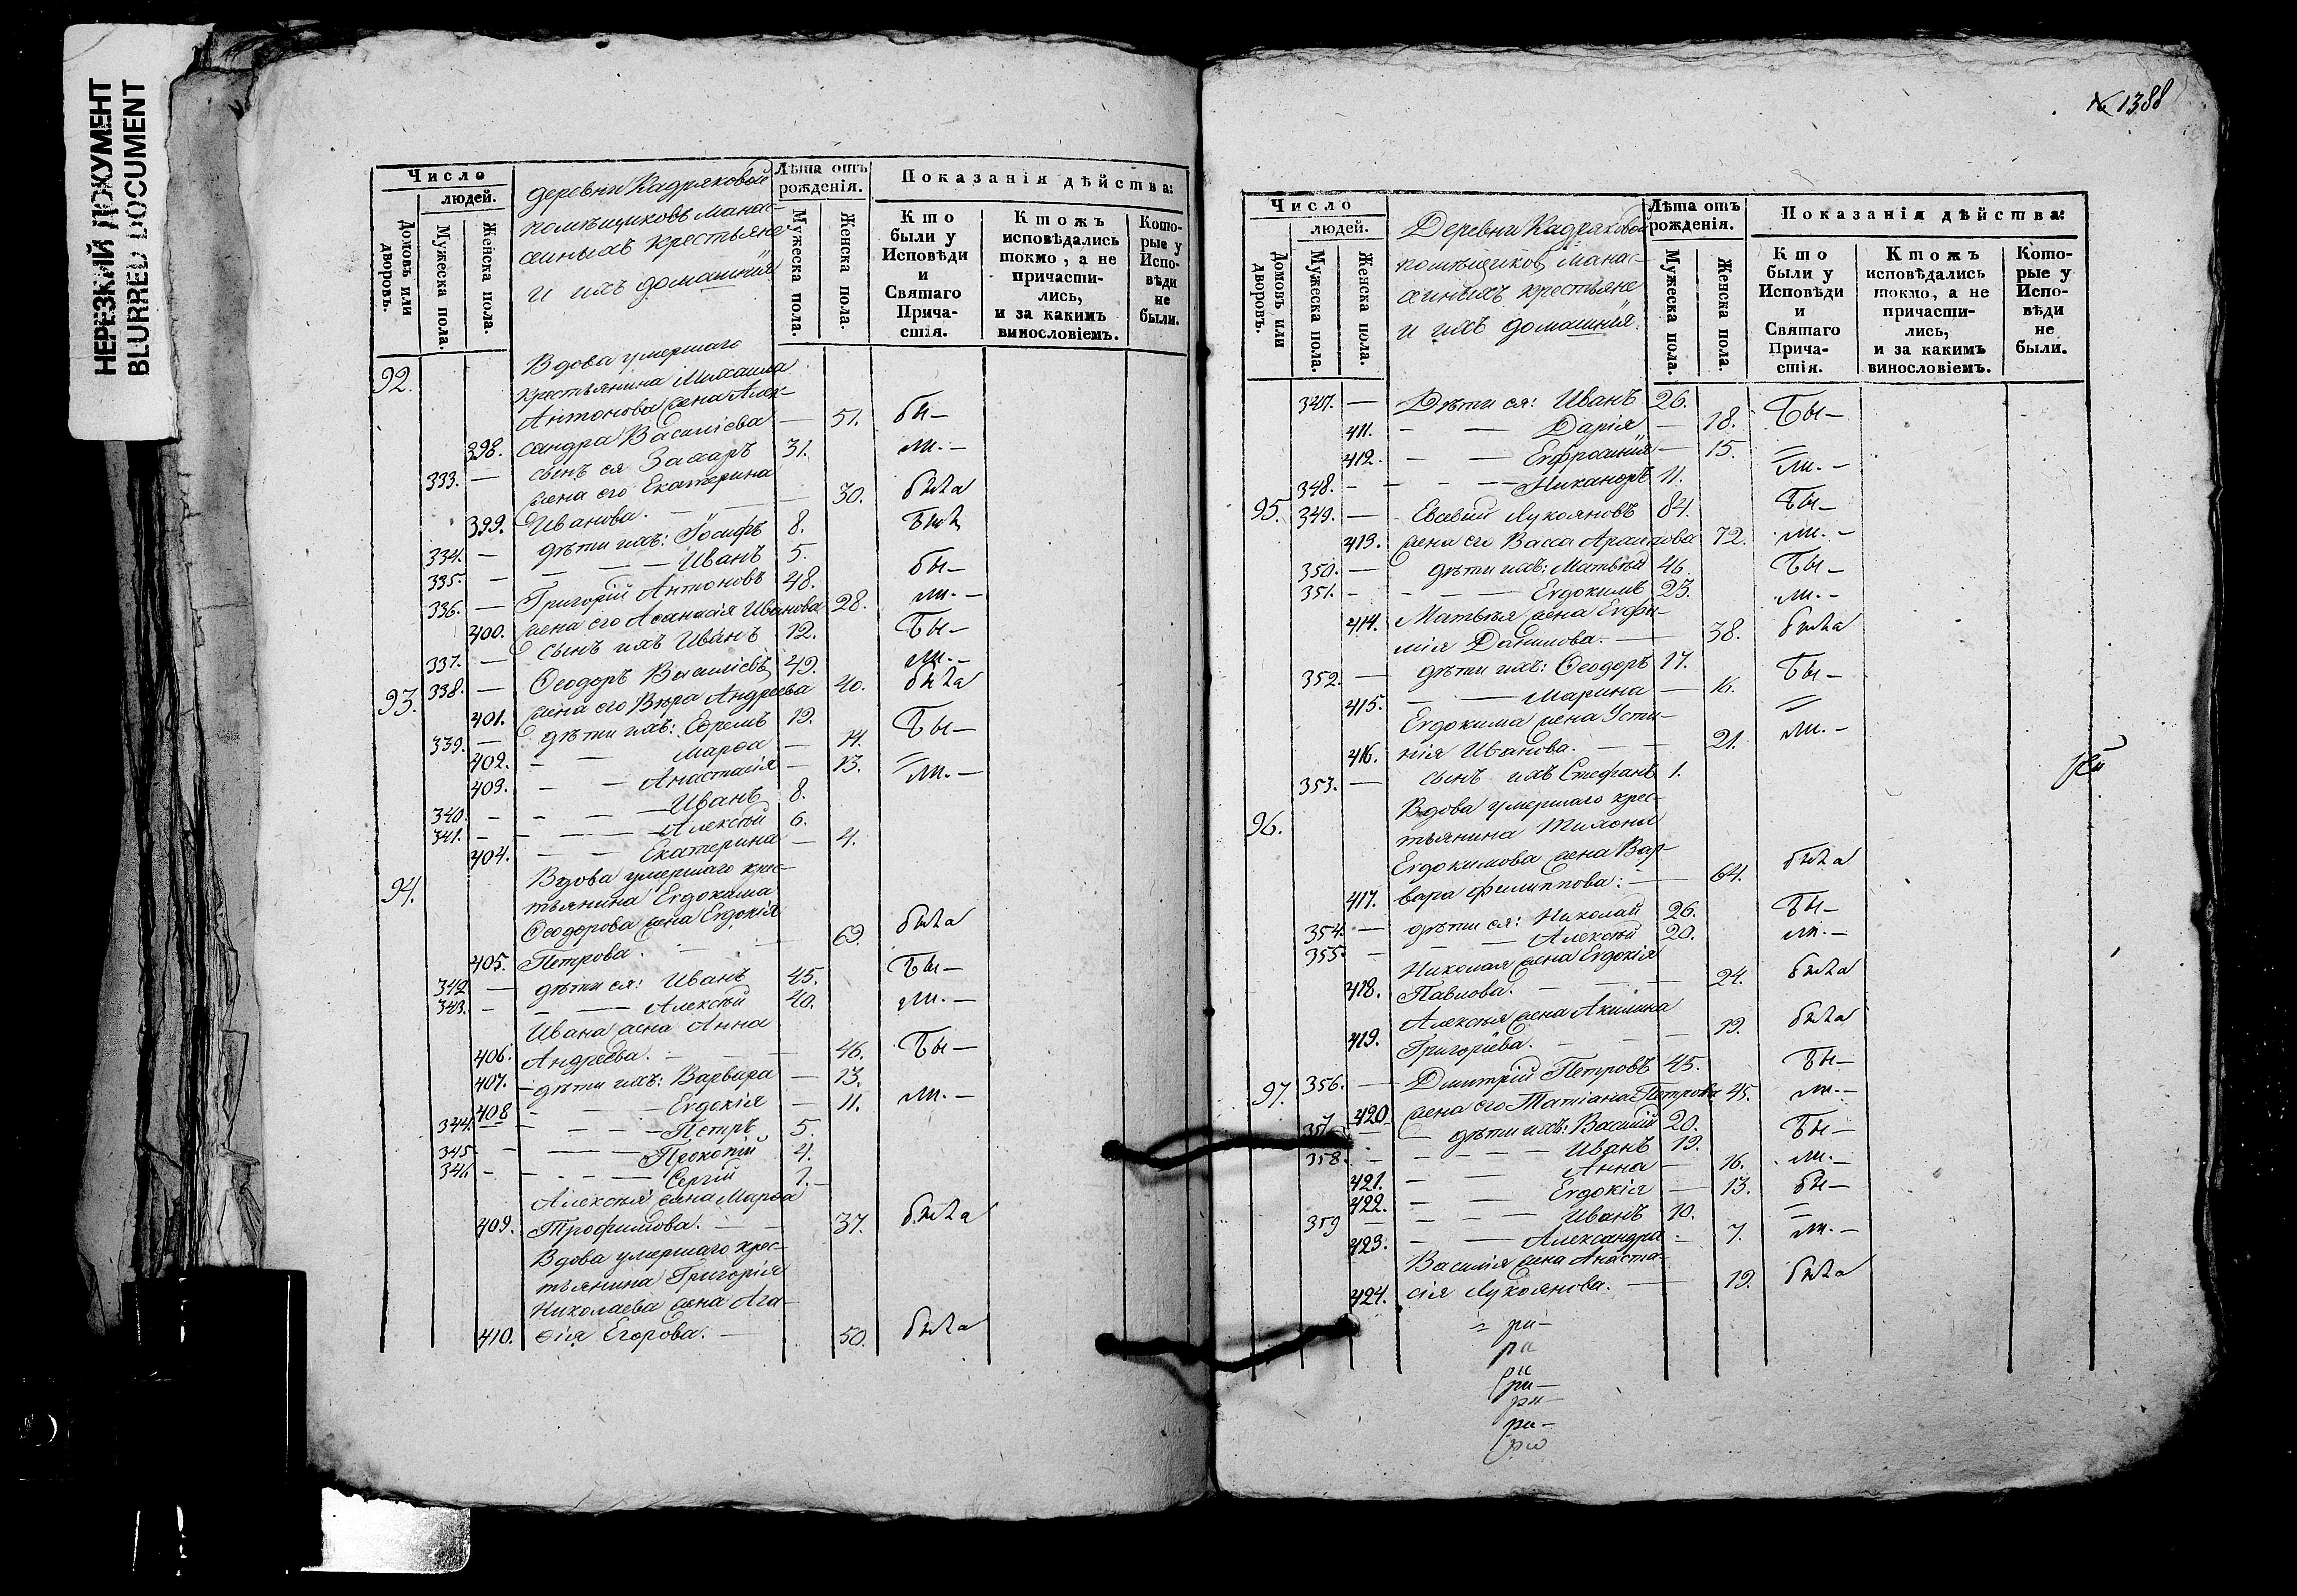 НЕРЕЗКИЙ ДОКУМЕНТ
BLURRED DOCUMENT
Число
людей.
Домовъ или дворовъ.
Мужеска пола.
Женска пола.
деревни Кадряковой
помѣщиковъ
крестьяне
и ихъ домашнія
Лѣта отъ рожденія.
Мужеска пола.
Женска пола.
Показанія дѣйства:
Кто были у Исповѣди и Святаго Причастія.
Ктожъ исповѣдались токмо, а не причастились, и за какимъ винословіемъ.
Которые у Исповѣди не были.
92. Вдова умершаго
крестьянина Михаила
Антонова жена Алек-
398. сандра Василіева — 51. бы-
333. — сынъ ея Захаръ 31. ли. —
жена его Екатерина
399. Иванова. — — 30. была
334. — дѣти ихъ: Іосифъ 8.
335. — — — Иванъ 5.
336. — Григорій Антоновъ 48. бы-
400. жена его Аѳанасія Иванова 28. ли. —
337. — сынъ ихъ Иванъ 12. Бы-
93. 338. — Ѳеодоръ Василіевъ 49. ли. —
401. жена его Вѣра Андреева 40. была
339. — дѣти ихъ: Ефремъ 19. Бы-
402. — — Марѳа — 14. =
403. — — Анастасія — 13. ли. —
340. — — — Иванъ 8.
341. — — — Алексѣй 6.
404. — — Екатерина — 4.
94. Вдова умершаго крес-
тьянина Евдокима
Ѳеодорова жена Евдокія
405. Петрова. — — 69. была
342. — дѣти ея: Иванъ 45. Бы-
343. — — — Алексѣй 40. ли. —
Ивана жена Анна
406. Андреева. — — — 46. Бы-
407. — дѣти ихъ: Варвара — 13.
408 — — — Евдокія — 11. ли. —
344. — — — Петръ 5.
345. — — — Прокопій 4.
346. — — — Сергій 1. —
Алексѣя жена Марѳа
409. Трофимова. — — 37. была
Вдова умершаго крес-
тьянина Григорія
Николаева жена Ага-
410. ѳія Егорова. — 50. была
№ 1388
Число
людей.
Домовъ или дворовъ.
Мужеска пола.
Женска пола.
Деревни Кадряковой
помѣщиковъ
крестьяне
и ихъ домашнія.
Лѣта отъ рожденія.
Мужеска пола.
Женска пола
Показанія дѣйства:
Кто были у Исповѣди и Святаго Причастія.
Ктожъ исповѣдались токмо, а не причастились, и за какимъ винословіемъ.
Которые у Исповѣди не были.
347. — Дѣти ея: Иванъ 26. Бы-
411. — — Дарія — 18.
412. — — Евфросинія — 15. =
348. — — — Никаноръ 11. ли. —
95. 349. — Евсевий Лукояновъ 84. Бы-
413. жена его Васса Архипова 72. ли. —
350. — дѣти ихъ: Матвѣй 46. Бы-
351. — — — Евдокимъ 23. ли. —
Матвѣя жена Евфи-
414. мія Данилова. — 38. была
352. — дѣти ихъ: Ѳеодоръ 17. Бы-
415. — — Марина — 16. =
Евдокима жена Усти-
416. нія Иванова. — — 21. ли. —
353. — сынъ ихъ Стефанъ 1.
96. Вдова умершаго крес-
тьянина Тихона
Евдокимова жена Вар-
417. вара Филиппова: — 64. была
354. — дѣти ея: Николай 26. Бы-
355. — — — Алексѣй 20. ли. —
Николая жена Евдокія
418. Павлова. — — 24. была
Алексѣя жена Акилина
419. Григоріева. — — 19. была
97. 356. — Дмитрій Петровъ 45. Бы-
420. жена его Татіана Петрова 45. ли. —
357 — дѣти ихъ: Василій 20. Бы-
358. — — — Иванъ 19.
421. — — Анна — 16. ли. —
422. — — Евдокія — 13. бы-
359 — — — Иванъ 10. =
423. — — Александра — 7. ли. —
Василія жена Анаста-
424. сія Лукоянова. — 19. была